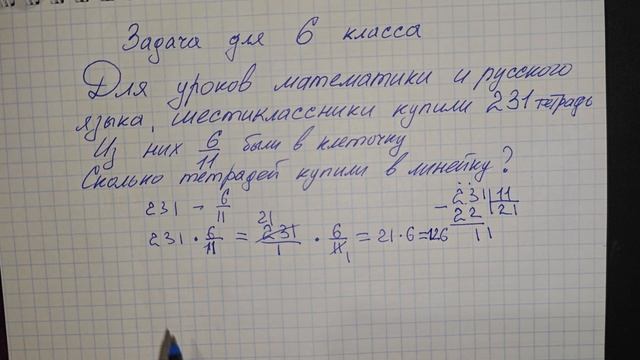 Задача для 6 класса
Для уроков математики и русского
языка, шестиклассники купили 231 тетрадь
Из них 6/11 были в клеточку
Сколько тетрадей купили в линейку?
231 - 6/11
231 · 6/11 = 231/1 · 6/11 = 21·6=126
21
1
- 231 11
22 21
11